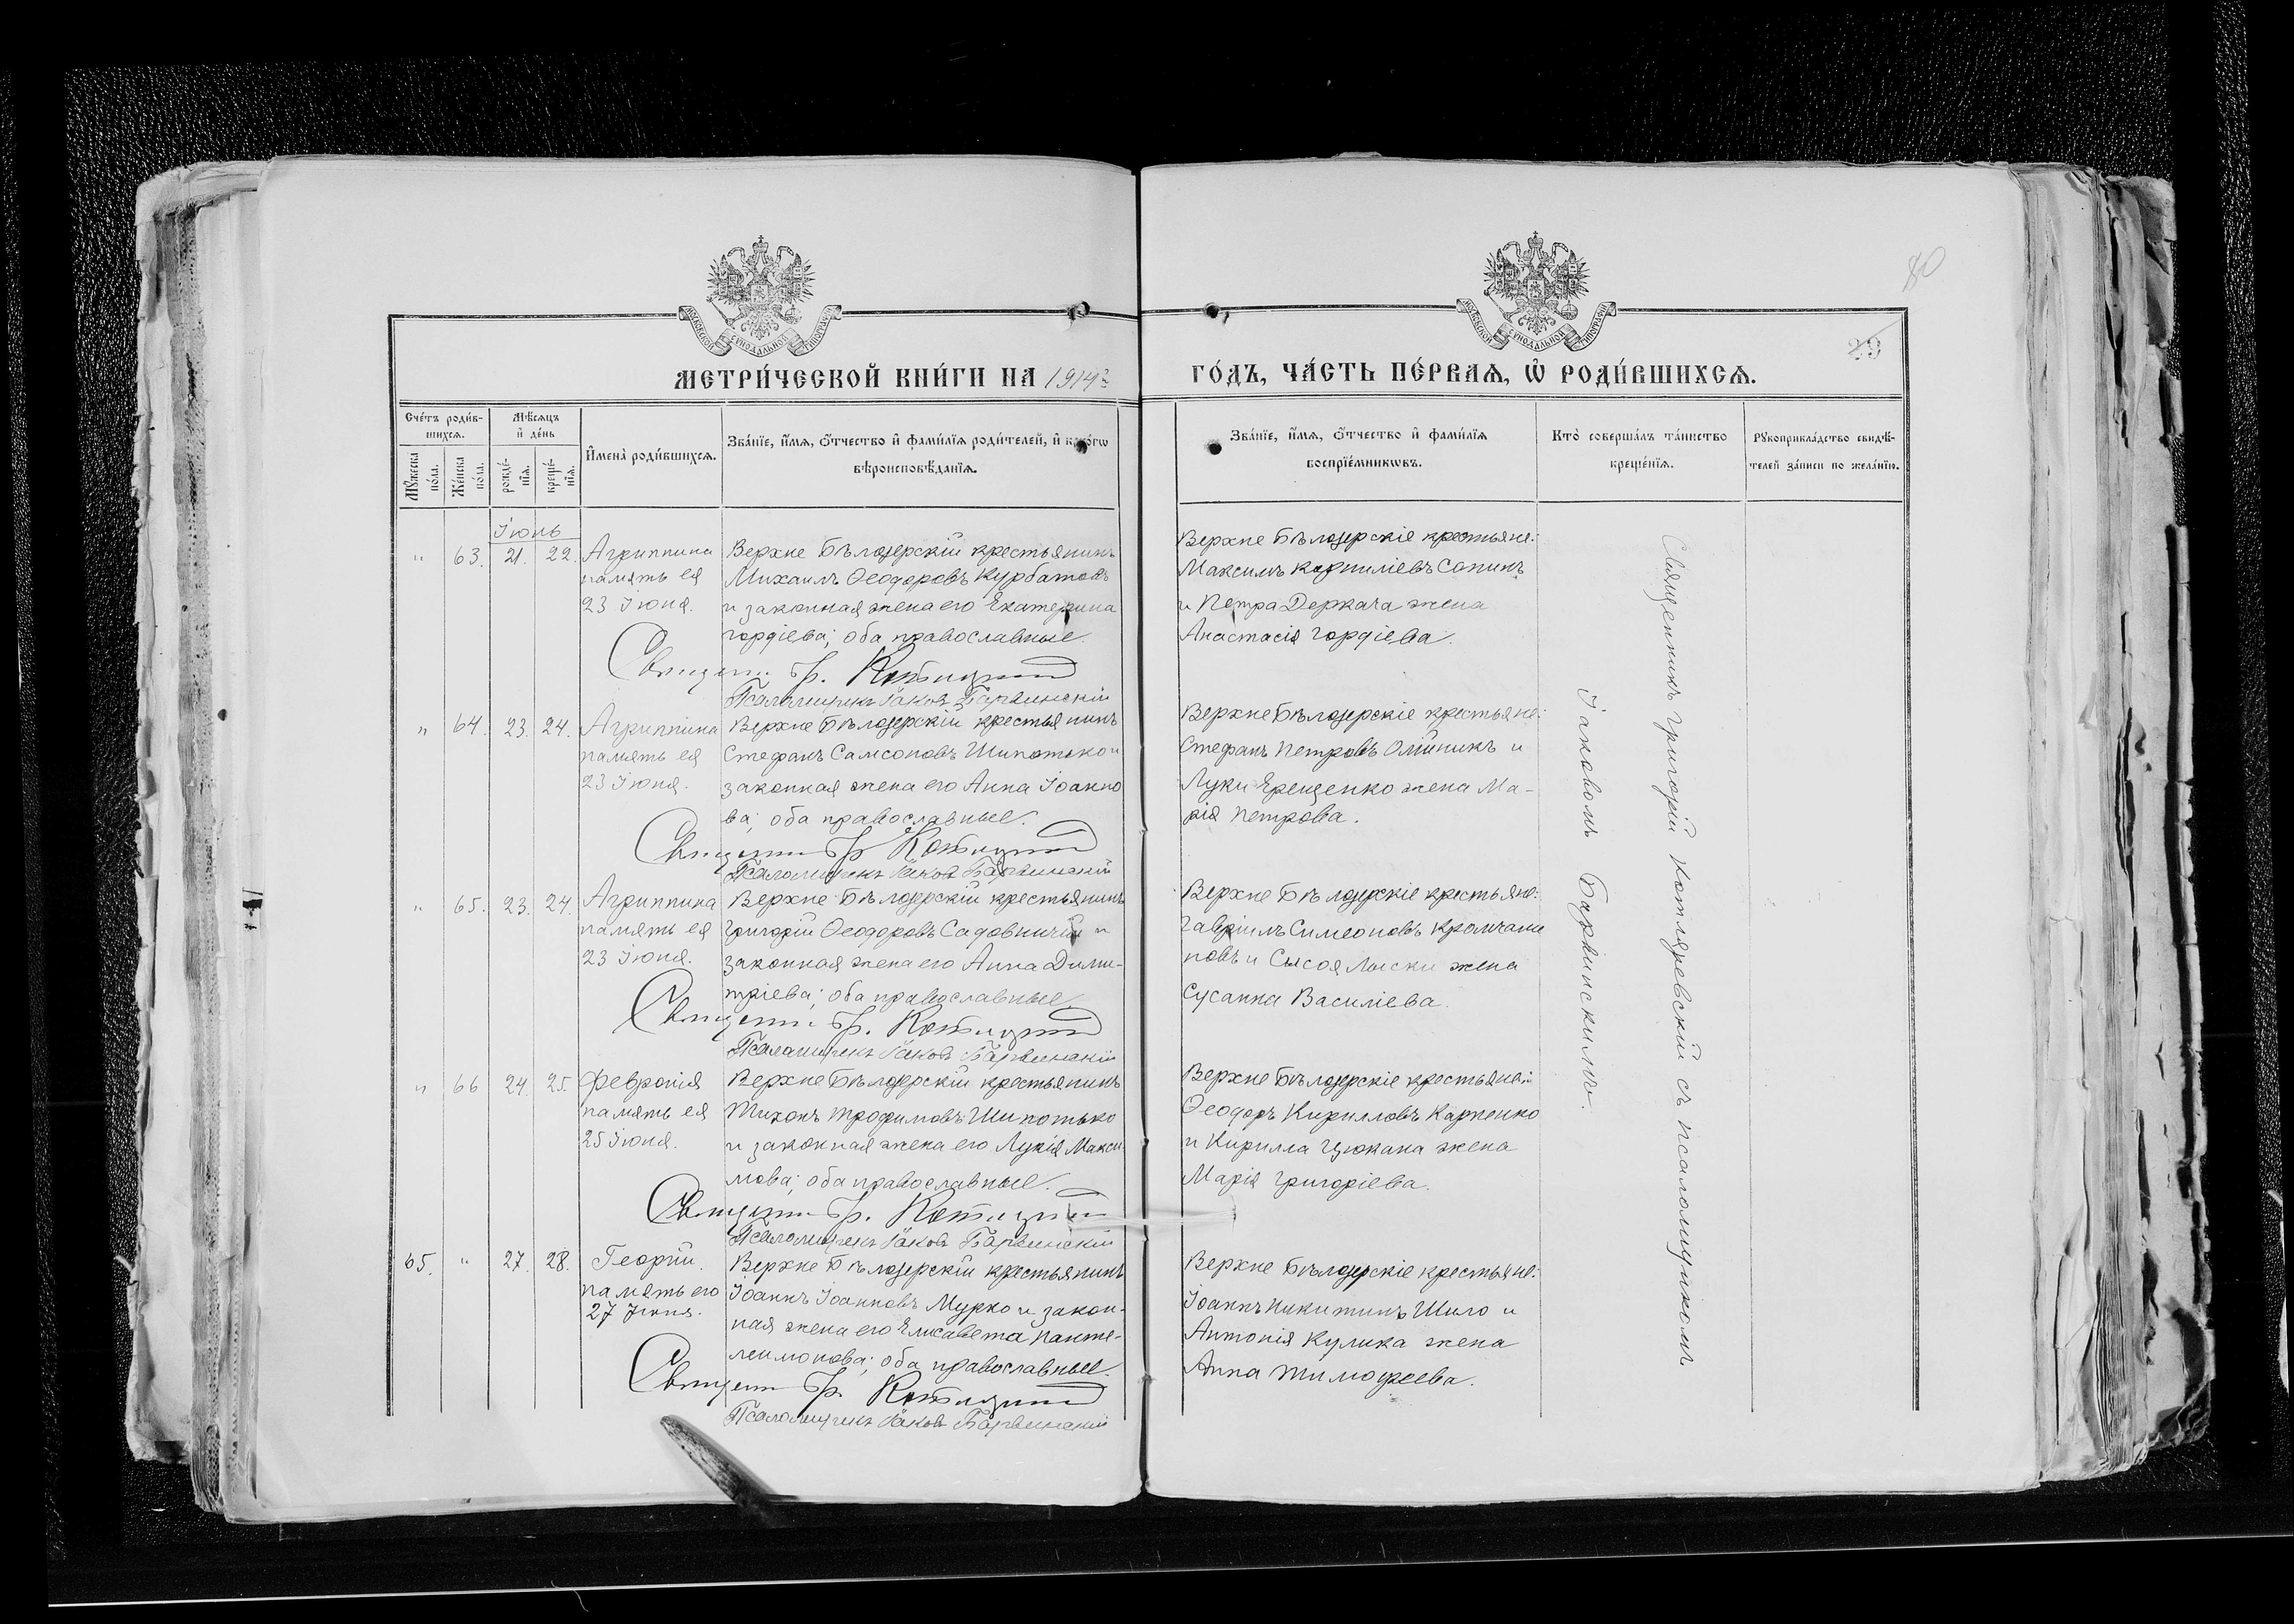 80
29
МОСКОВСКОЙ СѶНОДАЛЬНОЙ ТИПОГРАФІИ
МОСКОВСКОЙ СѶНОДАЛЬНОЙ ТИПОГРАФІИ
МЕТРИ́ЧЕСКОЙ КНИ́ГИ НА 1914 г.
ГО́ДЪ, ЧА́СТЬ ПЕ́РВАѦ, Ѡ҆ РОДИ́ВШИХСѦ.
Сче́тъ роди́в-
шихсѧ.
Мꙋ́жеска по́ла.
Же́нска по́ла.
Мѣ́сѧцъ
и҆ де́нь
рожде́-
нїѧ.
креще́-
нїѧ.
И҆мена̀ роди́вшихсѧ.
Зва́нїе, и҆́мѧ, ѻ҆́тчество и҆ фами́лїѧ роди́телей, и҆ како́гѡ
вѣроисповѣ́данїѧ.
Зва́нїе, и҆́мѧ, ѻ҆́тчество и҆ фами́лїѧ
воспрїе́мникѡвъ.
Кто̀ соверша́лъ та́инство
креще́нїѧ.
Рꙋкоприкла́дство свидѣ́-
телей за́писи по жела́нїю.
Іюнь
" 63. 21. 22.
Агриппина
память ея
23 Іюня.
Верхне Бѣлозерскій крестьянинъ
Михаилъ Ѳеодоровъ Курбатовъ
и законная жена его Екатерина
Гордіева; оба православные.
Священ. Гр.
Псаломщикъ Іаковъ Барвинскій
Верхне Бѣлозерскіе крестьяне:
Максимъ Корниліевъ Сопинъ
и Петра Деркача жена
Анастасія Гордіева.
" 64. 23. 24.
Агриппина
память ея
23 Іюня.
Верхне Бѣлозерскій крестьянинъ
Стефанъ Самсоновъ Шипотько и
законная жена его Анна Іоанно
ва; оба православные.
Священ. Гр.
Псаломщикъ Іаковъ Барвинскій
Верхне Бѣлозерскіе крестьяне:
Стефанъ Петровъ Олійникъ и
Луки Ерещенко жена Ма-
рія Петрова.
" 65. 23. 24.
Агриппина
память ея
23 Іюня.
Верхне Бѣлозерскій крестьянинъ
Григорій Ѳеодоровъ Садовничій и
законная жена его Анна Дими-
тріева; оба православные
Священ. Гр.
Псаломщикъ Іаковъ Барвинскій
Верхне Бѣлозерскіе крестьяне:
Гавріилъ Симеоновъ
новъ и Сысоя Лыски жена
Сусанна Василіева.
" 66 24. 25.
Февронія
память ея
25 Іюня.
Верхне Бѣлозерскій крестьянинъ
Тихонъ Трофимовъ Шипотько
и законная жена его Лукія Макси
мова; оба православные.
Священ. Гр.
Псаломщикъ Іаковъ Барвинскій
Верхне Бѣлозерскіе крестьяне:
Ѳеодоръ Кирилловъ Карпенко
и Кирилла Цюкана жена
Марія Григоріева.
65. " 27. 28.
Георгій.
память его
27 Іюня.
Верхне Бѣлозерскій крестьянинъ
Іоаннъ Іоанновъ Мурко и закон-
ная жена его Елисавета Панте-
леимонова; оба православные.
Священ. Гр.
Псаломщикъ Іаковъ Барвинскій
Верхне Бѣлозерскіе крестьяне:
Іоаннъ Никитинъ Шило и
Антонія Кулика жена
Анна Тимофеева.
Священникъ Григорій Котляревскій съ псаломщикомъ
Іаковомъ Барвинскимъ.